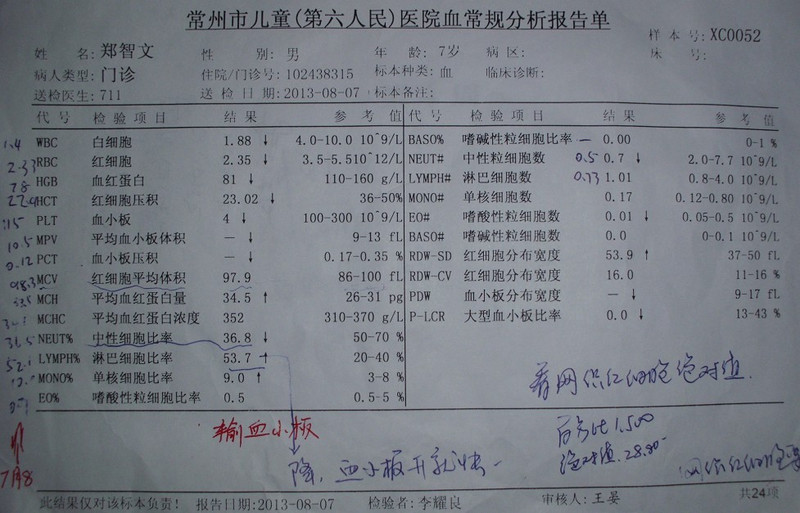 常州市儿童(第六人民)医院血常规分析报告单
样本号:XC0052
姓 名:郑智文 性 别:男 年 龄:7岁 病 区: 床 号:
病人类型:门诊 住院/门诊号:102438315 标本种类:血 临床诊断:
送检医生:711 送 检 日 期:2013-08-07 标本备注:
代 号 检 验 项 目 结 果 参 考 值 代 号 检 验 项 目 结 果 参 考 值
1.4 WBC 白细胞 1.88 ↓ 4.0-10.0 10^9/L BASO% 嗜碱性粒细胞比率 — 0.00 0-1 %
2.33 RBC 红细胞 2.35 ↓ 3.5-5.510^12/L NEUT# 中性粒细胞数 0.5 0.7 ↓ 2.0-7.7 10^9/L
78 HGB 血红蛋白 81 ↓ 110-160 g/L LYMPH# 淋巴细胞数 0.73 1.01 0.8-4.0 10^9/L
HCT 红细胞压积 23.02 ↓ 36-50% MONO# 单核细胞数 0.17 0.12-0.80 10^9/L
15 PLT 血小板 4 ↓ 100-300 10^9/L EO# 嗜酸性粒细胞数 0.01 ↓ 0.05-0.5 10^9/L
10.5 MPV 平均血小板体积 — ↓ 9-13 fL BASO# 嗜碱性粒细胞数 0.0 0-0.1 10^9/L
0.12 PCT 血小板压积 — ↓ 0.17-0.35 % RDW-SD 红细胞分布宽度 53.9 ↑ 37-50 fL
98.3 MCV 红细胞平均体积 97.9 86-100 fL RDW-CV 红细胞分布宽度 16.0 11-16 %
MCH 平均血红蛋白量 34.5 ↑ 26-31 pg PDW 血小板分布宽度 — ↓ 9-17 fL
MCHC 平均血红蛋白浓度 352 310-370 g/L P-LCR 大型血小板比率 0.0 ↓ 13-43 %
NEUT% 中性细胞比率 36.8 ↓ 50-70 %
52.1 LYMPH% 淋巴细胞比率 53.7 ↑ 20-40 %
MONO% 单核细胞比率 9.0 ↑ 3-8 %
EO% 嗜酸性粒细胞比率 0.5 0.5-5 %
看网织红细胞绝对值
输血小板
百分比1.500
绝对值.28.80
降,血小板升就快
网织红细胞
7月8
此结果仅对该标本负责! 报告日期:2013-08-07 检验者:李耀良 审核人:王晏 共24项